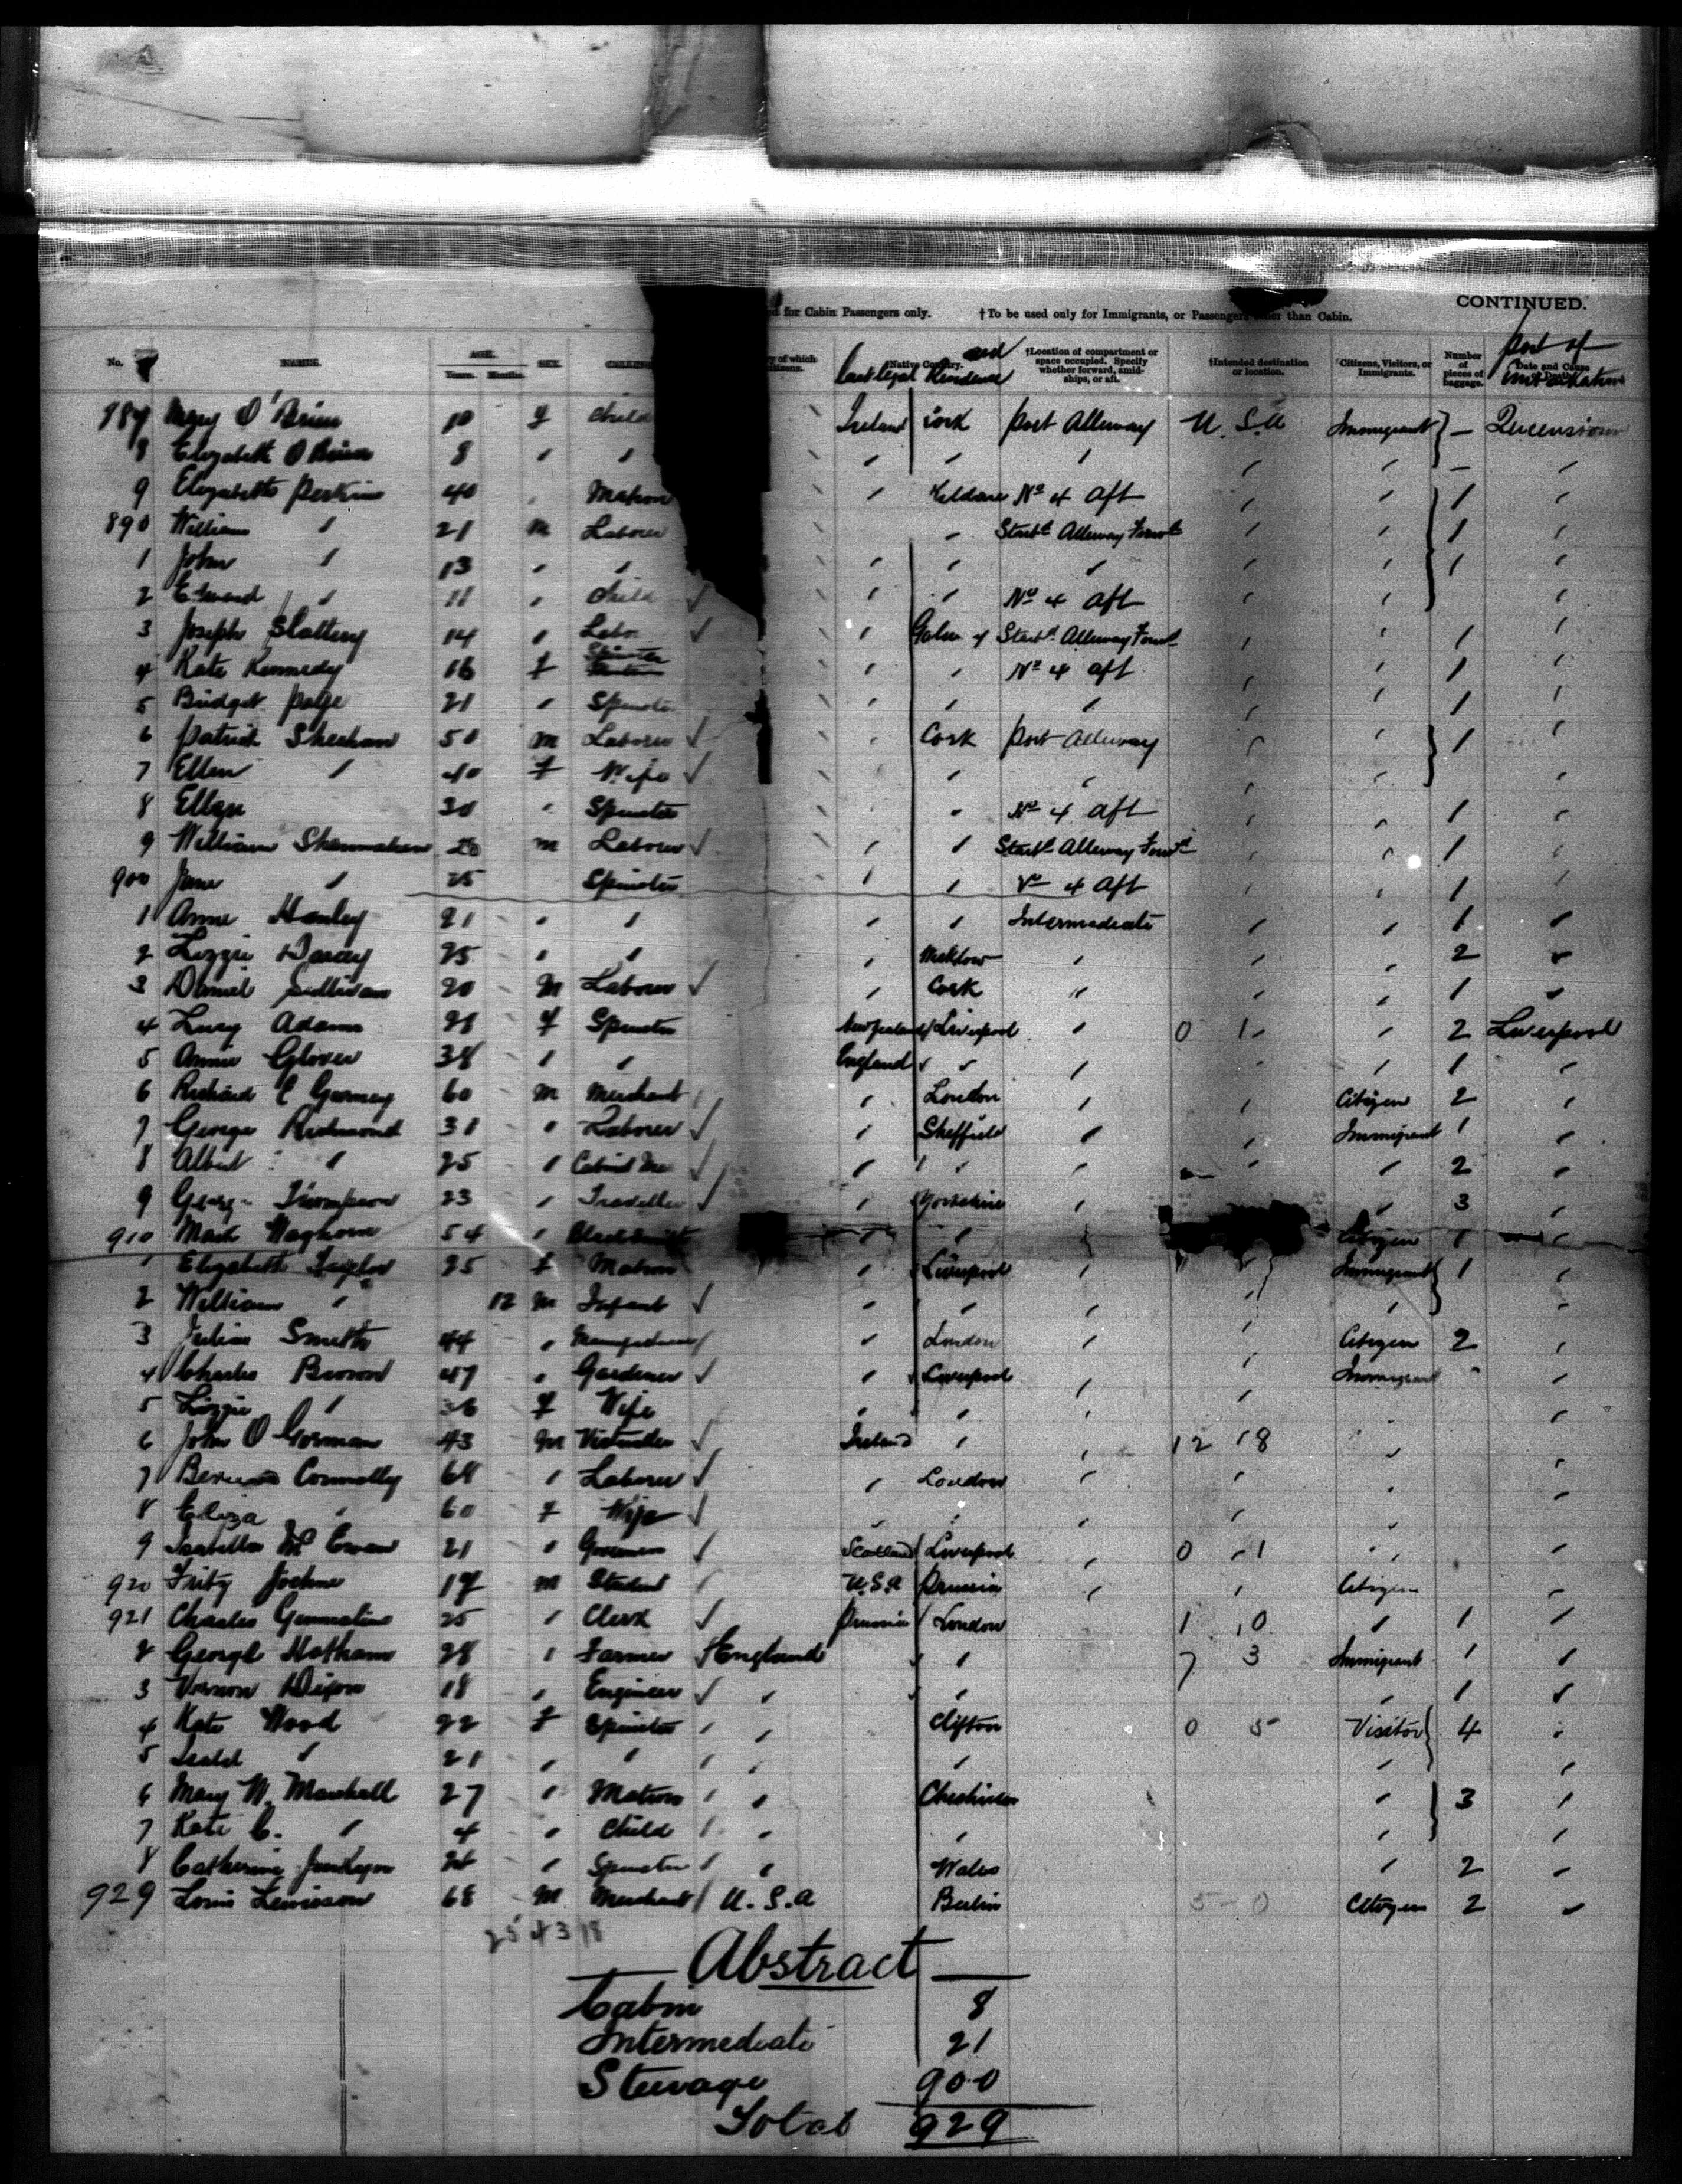 CONTINUED.
d for Cabin Passengers only. †To be used only for Immigrants, or Passengers other than Cabin.
No. NAMES. AGE. Years. Months. SEX. CALLING of which Last legal Residence and †Location of compartment or space occupied. Specify whether forward, amidships, or aft. †Intended destination or location. Citizens, Visitors, or Immigrants. Number of pieces of baggage. Port of Date and Cause
887 Mary O'Brien 10 f Child Ireland Cork Port Alleway U.S.A Immigrant —
8 Elizabeth O'Brien 8 " " " " " " " —
9 Elizabeth Perkins 40 " Matron " Kildare No 4 Aft " " 1
890 William " 21 M Laborer " Starbd Alleway Forwd " " 1
1 John " 13 " " " " " " " 1
2 Edward " 11 " Child " " No 4 Aft " "
3 Joseph Slattery 14 " Labo " Starbd Alleway Forwd " " 1
4 Kate Kennedy 16 f " " No 4 Aft " " 1
5 Bridget 21 " " " " " " 1
6 Patrick Sheehan 50 M Laborer " Cork Port Alleway " " 1
7 Ellen " 40 f Wife " " " "
8 Ellen 30 " Spinster " No 4 Aft " " 1
9 William Shannahan M Laborer " " Starbd Alleway Forwd " " 1
900 Jane " 25 Spinster " " 4 Aft " " 1
1 Anne Hanley 21 " " " " Intermediate " " 1 "
2 Lizzie Darcy 25 " " " " " " 2 "
3 Daniel Sullivan 20 M Laborer " Cork " " " 1 "
4 Lucy Adams 28 f Spinster New Zealand Liverpool " 0 1 " 2 Liverpool
5 Annie Glover 38 " " England " " " " 1 "
6 Richard C 60 M Merchant " London " " Citizen 2 "
7 George Richmond 31 " Laborer " Sheffield " " Immigrant 1 "
8 Albert " 25 " " " " " " 2 "
9 Thompson 23 " Traveller " Yorkshire " " 3 "
910 Mark Waghorn 54 " Blacksmith " " " Citizen 1 "
1 Elizabeth Taylor 25 f Matron " Liverpool " " Immigrant 1 "
2 William " 12 M Infant " " " " " "
3 Julius Smith 44 " " London " " Citizen 2 "
4 Charles Brown 47 " Gardener " Liverpool " " Immigrant " "
5 Lizzie " 36 f Wife " " " " "
6 John O'Gorman 43 M Ireland " " 12 18 " "
7 Connolly 68 " Laborer " London " " " "
8 Eliza " 60 f Wife " " " " " "
9 Isabella McEwan 21 " Scotland Liverpool " 0 1 " "
920 Fritz 17 M Student U.S.A Prussia " " Citizen "
921 Charles 25 " Clerk Prussia London 1 10 " 1 "
2 George Hotham 28 " Farmer England " 7 3 Immigrant 1 "
3 Vernon Dixon 18 " Engineer " " " 1 "
4 Kate Wood 22 f Spinster " Clifton 0 5 Visitor 4 "
5 " 21 " " " " " "
6 Mary W. Marshall 27 " Matron " Cheshire " 3 "
7 Kate C. " 4 " Child " " " "
8 Catherine 24 " Spinster " Wales " 2 "
929 Louis Lewisson 68 M Merchant U.S.A Berlin 5 0 Citizen 2 "
Abstract
Cabin 8
Intermediate 21
Steerage 900
Total 929